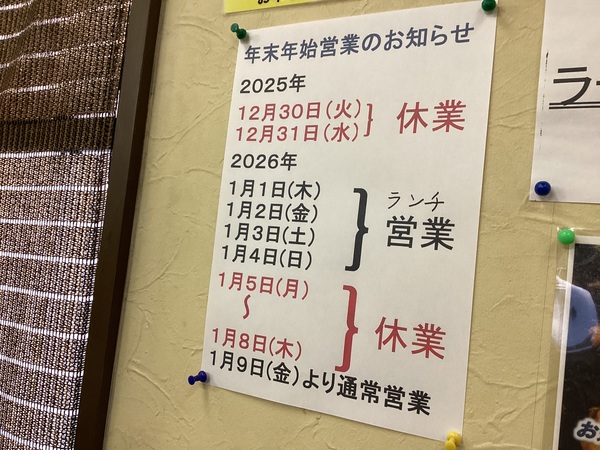 年末年始営業のお知らせ
2025年
12月30日(火)
12月31日(水)
} 休業
2026年
1月1日(木)
1月2日(金)
1月3日(土)
1月4日(日)
} ランチ
営業
1月5日(月)
〜
1月8日(木)
} 休業
1月9日(金)より通常営業